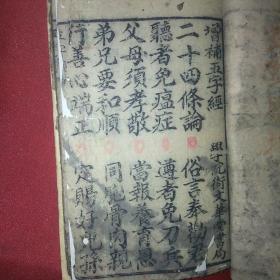 增補五字經
文華堂書局
二十四條論 俗言奉勸君
聽者免瘟症 遵者免刀兵
父母須孝敬 當報養育恩
弟兄要和順 同胞骨肉親
行善心端正 定賜好